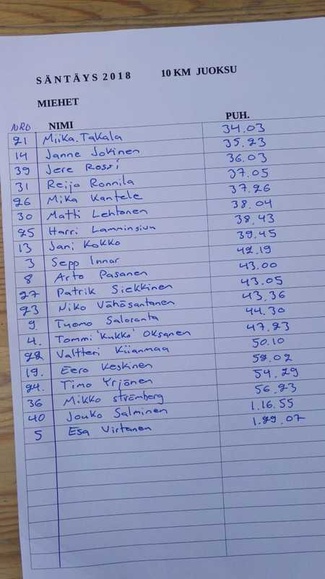 SÄNTÄYS 2018 10 KM JUOKSU
MIEHET
NRO NIMI PUH.
21 Miika Takala 34.03
14 Janne Jokinen 35.23
39 Jere Rossi 36.03
31 Reijo Ronnila 37.05
26 Mika Kantele 37.26
30 Matti Lehtonen 38.04
25 Harri Lamminsiun 38.43
13 Jani Kokko 39.45
3 Sepp Innar 42.19
8 Arto Pasanen 43.00
27 Patrik Siekkinen 43.05
23 Niko Vähäsantanen 43.36
9 Tuomo Saloranta 44.30
4. Tommi "Kukko" Oksanen 47.23
22 Valtteri Kiianmaa 50.10
19. Eero Keskinen 52.02
24. Timo Yrjänen 54.29
36 Mikko Strömberg 56.23
40 Jouko Salminen 1.16.55
5 Esa Virtanen 1.29.07